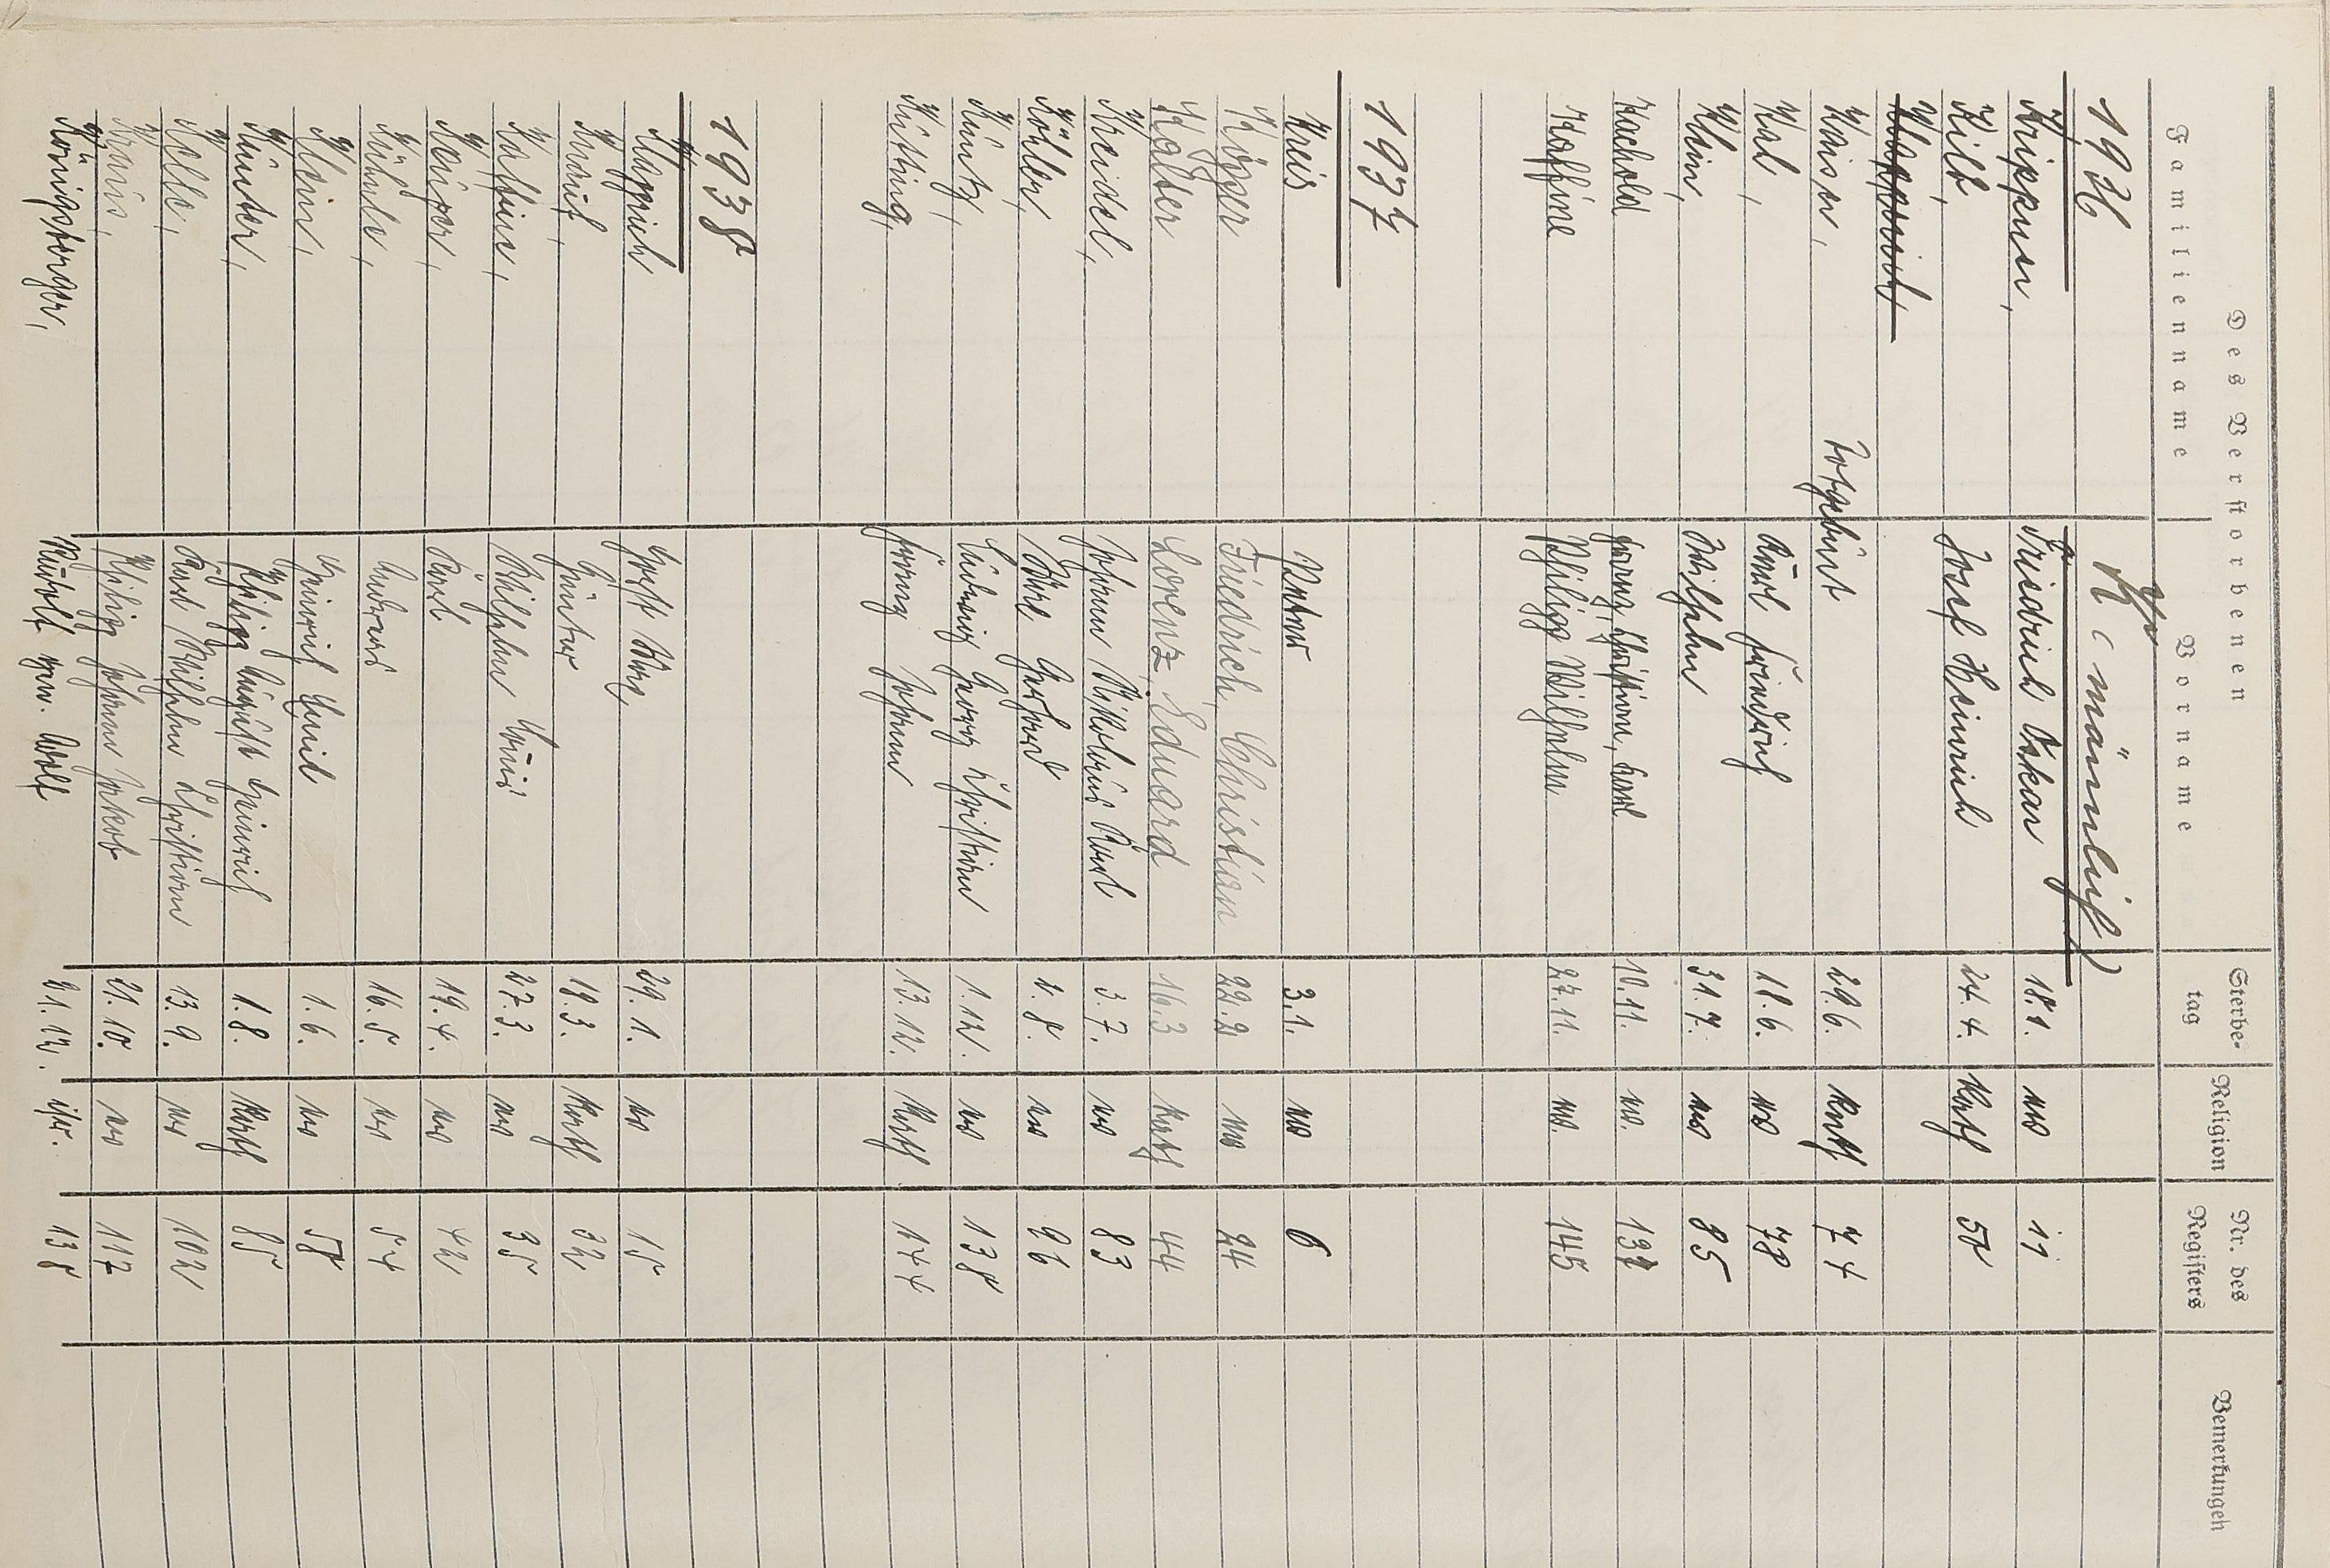 Des Verstorbenen
Familienname Vorname Sterbetag Religion Nr. des Registers Bemerkungen
K (männlich)
1936
Krippner, Friedrich Oskar 18.1. ev 11
Kilb, Josef Heinrich 24.4. Kath 50
Klapproth
Kaiser, Totgeburt 29.6. Kath 74
Kal, Karl Friedrich 18.6. ev 78
Klein, Wilhelm 31.7. ev 85
Kachold Georg, Christian, Karl 10.11. ev. 132
Kaffine Philipp Wilhelm 27.11. ev. 145
1937
Kreis Peter 3.1. ev 6
Köger Friedrich, Christian 22.2 ev 24
Kolter Lorenz, Eduard 16.3 Kath 44
Kreidel, Johann Nikolaus Karl 3.7. ev 83
Köhler, Karl Gerhard 2.8. ev 96
Küntz, Ludwig Georg Christian 1.12. ev 138
Kütting, Franz Johann 13.12. Kath 144
1938
Klapprich Horst Karl, 29.1. ev 15
Knauf, Günter 18.3. Kath 32
Kaffine, Wilhelm Louis 27.3. ev 35
Karl 19.4. ev 42
Kühnle, Andreas 16.5. ev 54
Klein, Heinrich Emil 1.6. ev 58
Künder, Philipp August Heinrich 1.8. Kath 85
Kelle, Karl Wilhelm Christian 13.9. ev 102
Kraus, Philipp Johann Jakob 21.10. ev 117
Königsberger, Rudolf gen. Adolf 21.12. isr. 138